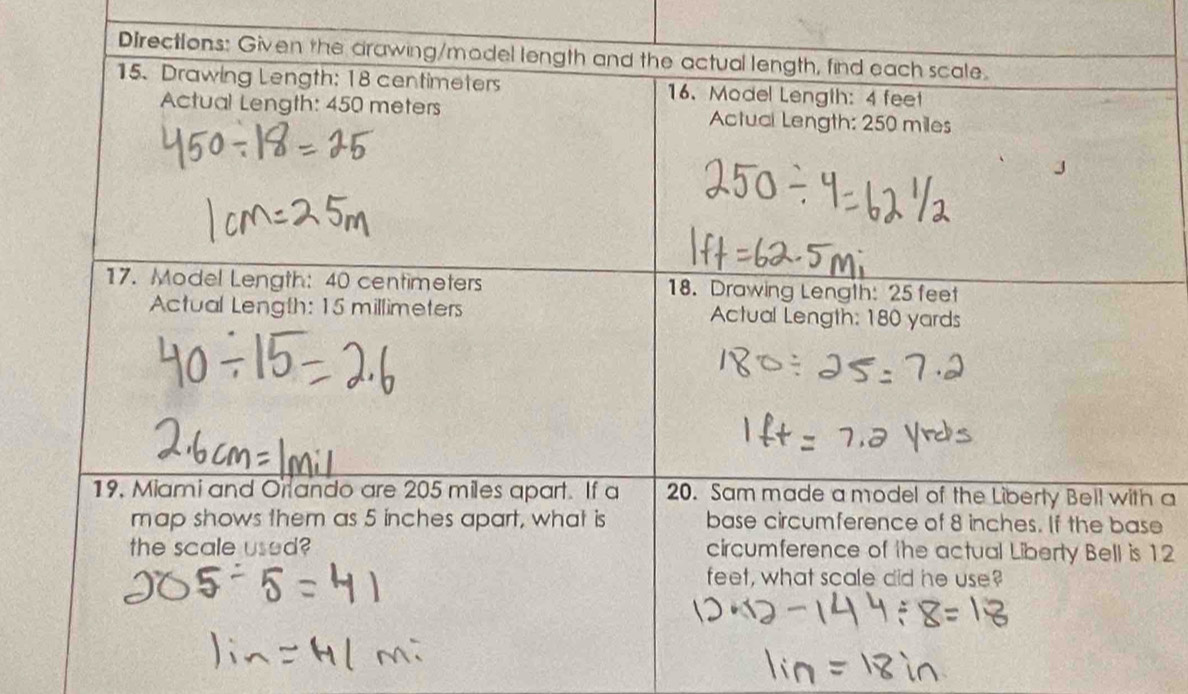 Directions: Given the drawing/model length and the actual length, find each scale.
15. Drawing Length: 18 centimeters
Actual Length: 450 meters
450÷18=25
1cm=25m
16. Model Length: 4 feet
Actual Length: 250 miles
250÷4=62 1/2
1ft=62.5mi
17. Model Length: 40 centimeters
Actual Length: 15 millimeters
40÷15=2.6
2.6cm=1mil
18. Drawing Length: 25 feet
Actual Length: 180 yards
180÷25=7.2
1ft=7.2 yrds
19. Miami and Orlando are 205 miles apart. If a
map shows them as 5 inches apart, what is
the scale used?
205÷5=41
1in=41 mi
20. Sam made a model of the Liberty Bell with a
base circumference of 8 inches. If the base
circumference of the actual Liberty Bell is 12
feet, what scale did he use?
12·12-144÷8=18
1in=18in